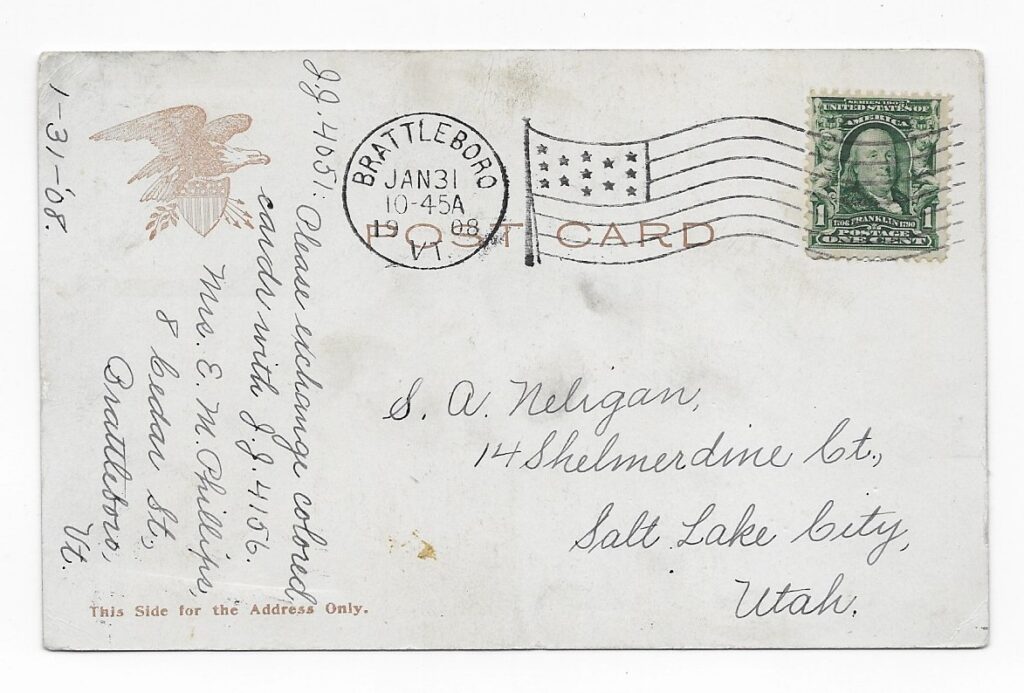 1-31-'08.
J.J. 4051: Please exchange colored
cards with J.J. 4156.
Mrs. E. M. Phillips,
8 Cedar St.,
Brattleboro,
Vt.
BRATTLEBORO
JAN 31
10-45A
19 08
VT.
POST CARD
SERIES 1902
UNITED STATES OF
AMERICA
1706 FRANKLIN 1790
1 POSTAGE 1
ONE CENT
S. A. Neligan,
14 Shelmerdine Ct.,
Salt Lake City,
Utah.
This Side for the Address Only.